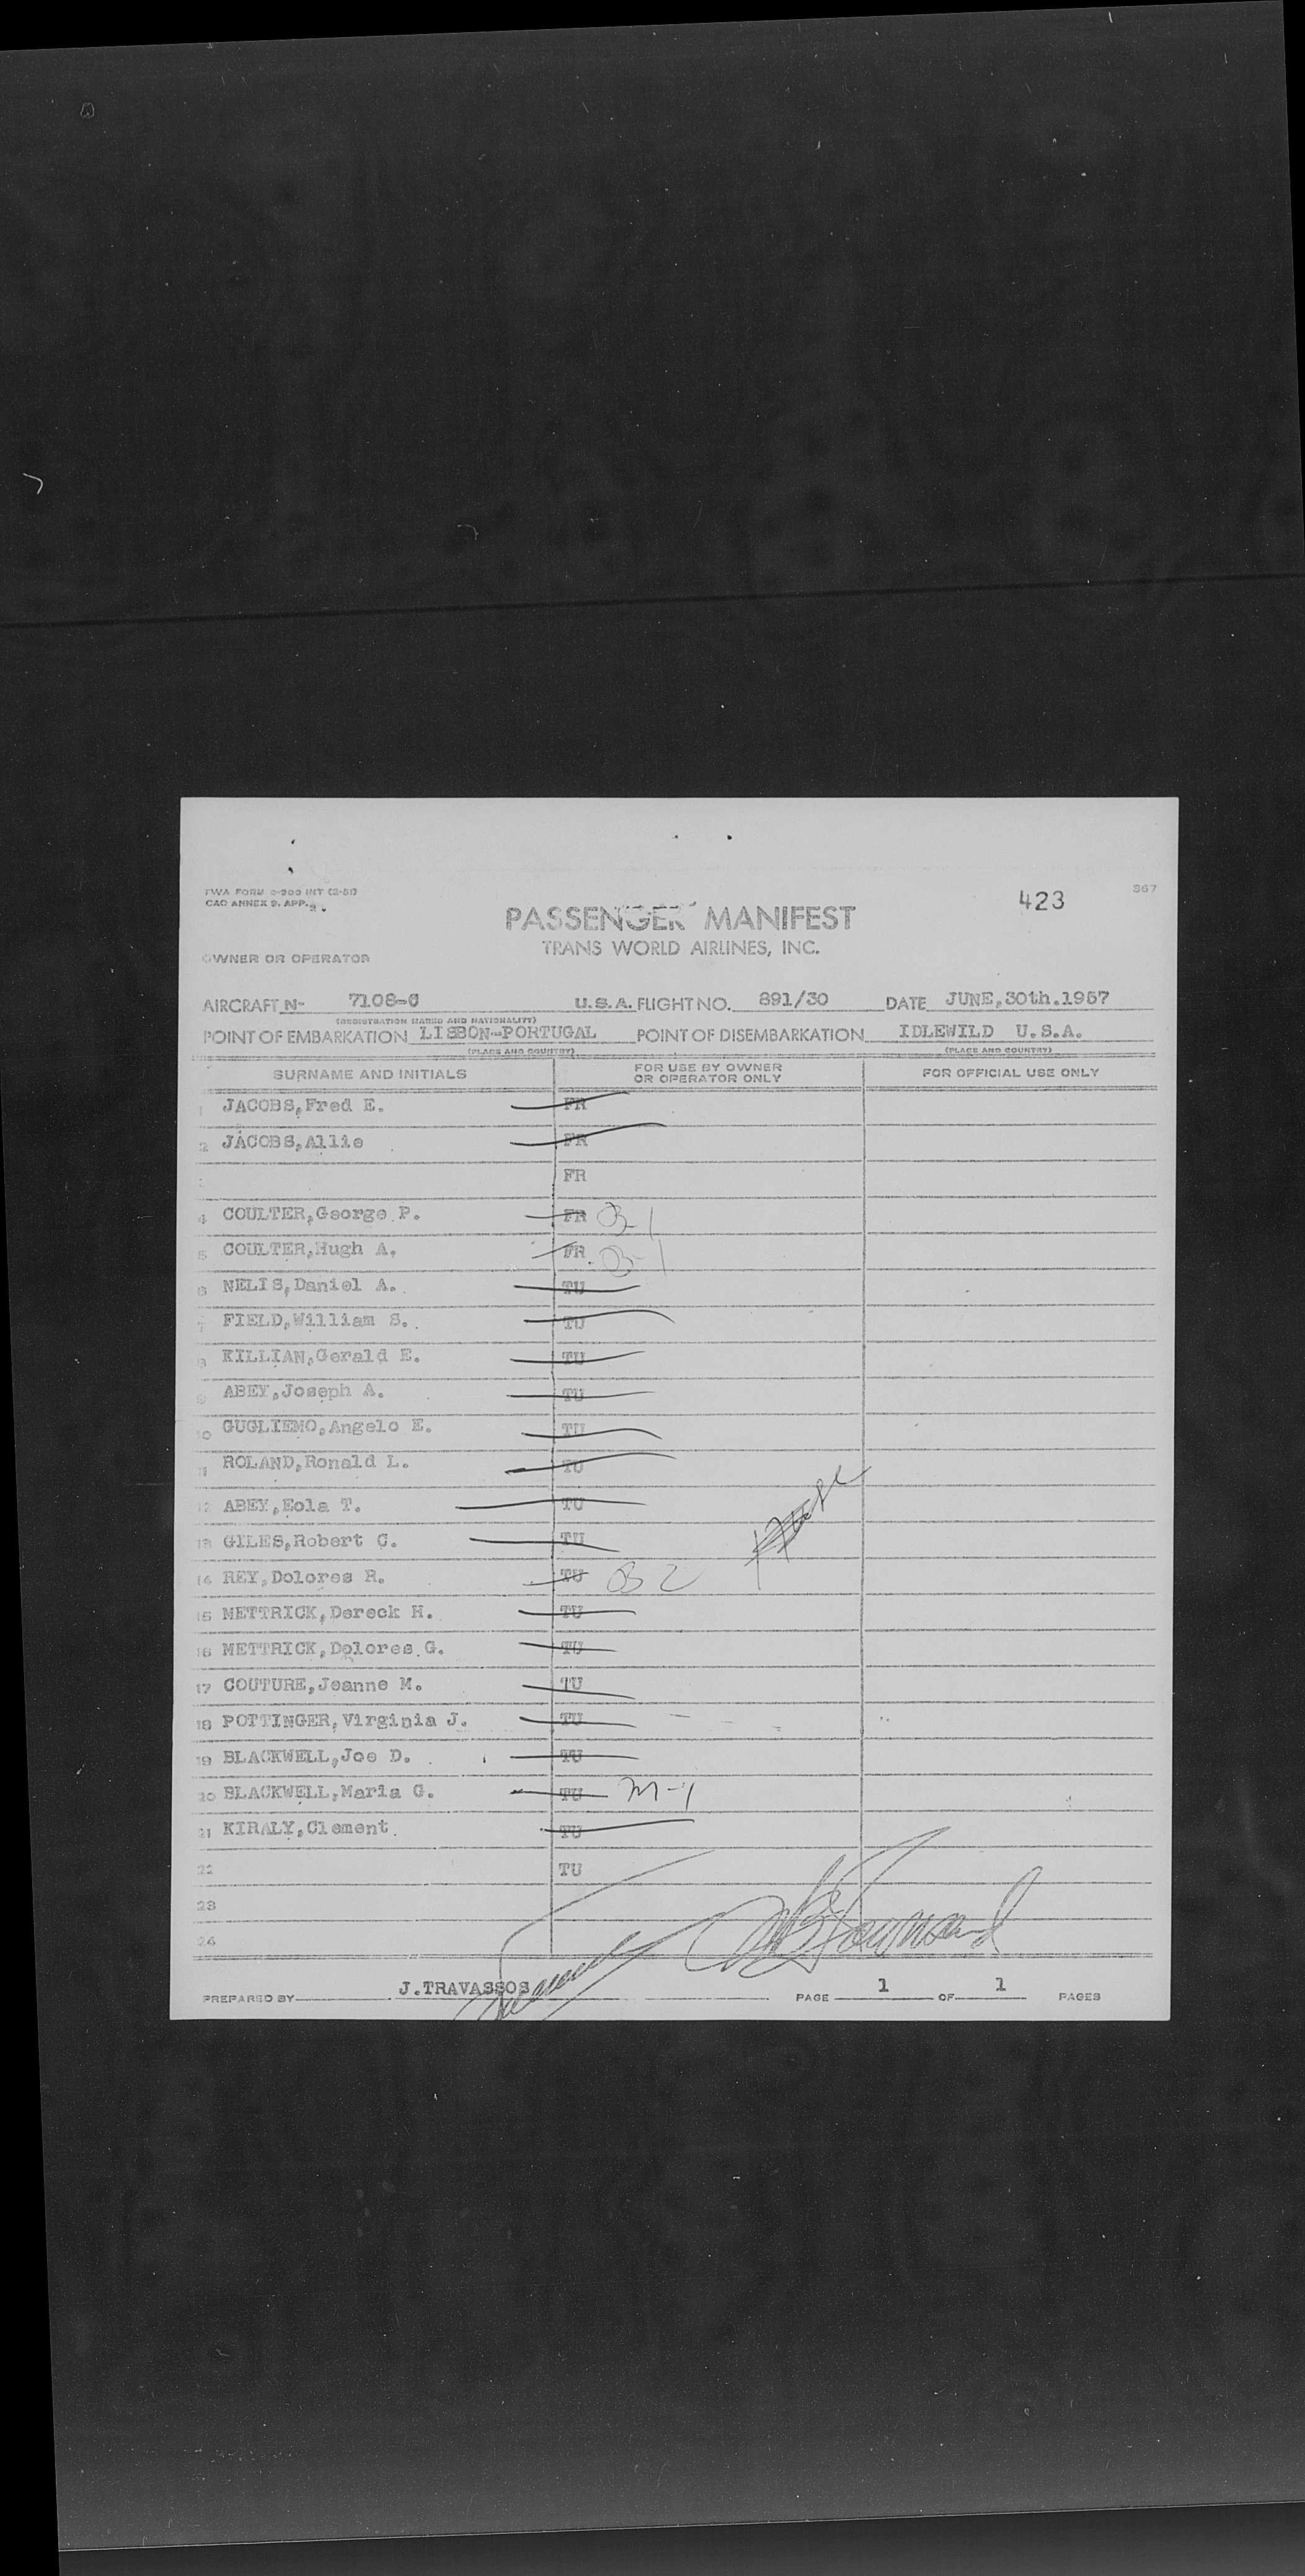 TWA FORM 0-200 INT (2-51)
CAO ANNEX 9. APP.
423
567
PASSENGER MANIFEST
TRANS WORLD AIRLINES, INC.
OWNER OR OPERATOR
AIRCRAFT N- 7108-C U.S.A. FLIGHT NO. 891/30 DATE JUNE,30th.1957
(REGISTRATION MARKS AND NATIONALITY)
POINT OF EMBARKATION LISBON-PORTUGAL POINT OF DISEMBARKATION IDLEWILD U.S.A.
(PLACE AND COUNTRY) (PLACE AND COUNTRY)
SURNAME AND INITIALS FOR USE BY OWNER OR OPERATOR ONLY FOR OFFICIAL USE ONLY
1 JACOBS,Fred E. FR
2 JACOBS,Allie FR
FR
4 COULTER,George P. FR B-1
5 COULTER,Hugh A. FR B-1
6 NELIS,Daniel A. TU
7 FIELD,William S. TU
8 KILLIAN,Gerald E. TU
9 ABEY,Joseph A. TU
10 GUGLIEMO,Angelo E. TU
11 ROLAND,Ronald L. TU
12 ABEY,Eola T. TU
13 GILES,Robert C. TU
14 REY,Dolores R. TU B 2
15 METTRICK,Dereck H. TU
16 METTRICK,Dolores G. TU
17 COUTURE,Jeanne M. TU
18 POTTINGER,Virginia J. TU
19 BLACKWELL,Joe D. TU
20 BLACKWELL,Maria G. TU M-1
21 KIRALY,Clement TU
22 TU
23
24
PREPARED BY J.TRAVASSOS PAGE 1 OF 1 PAGES